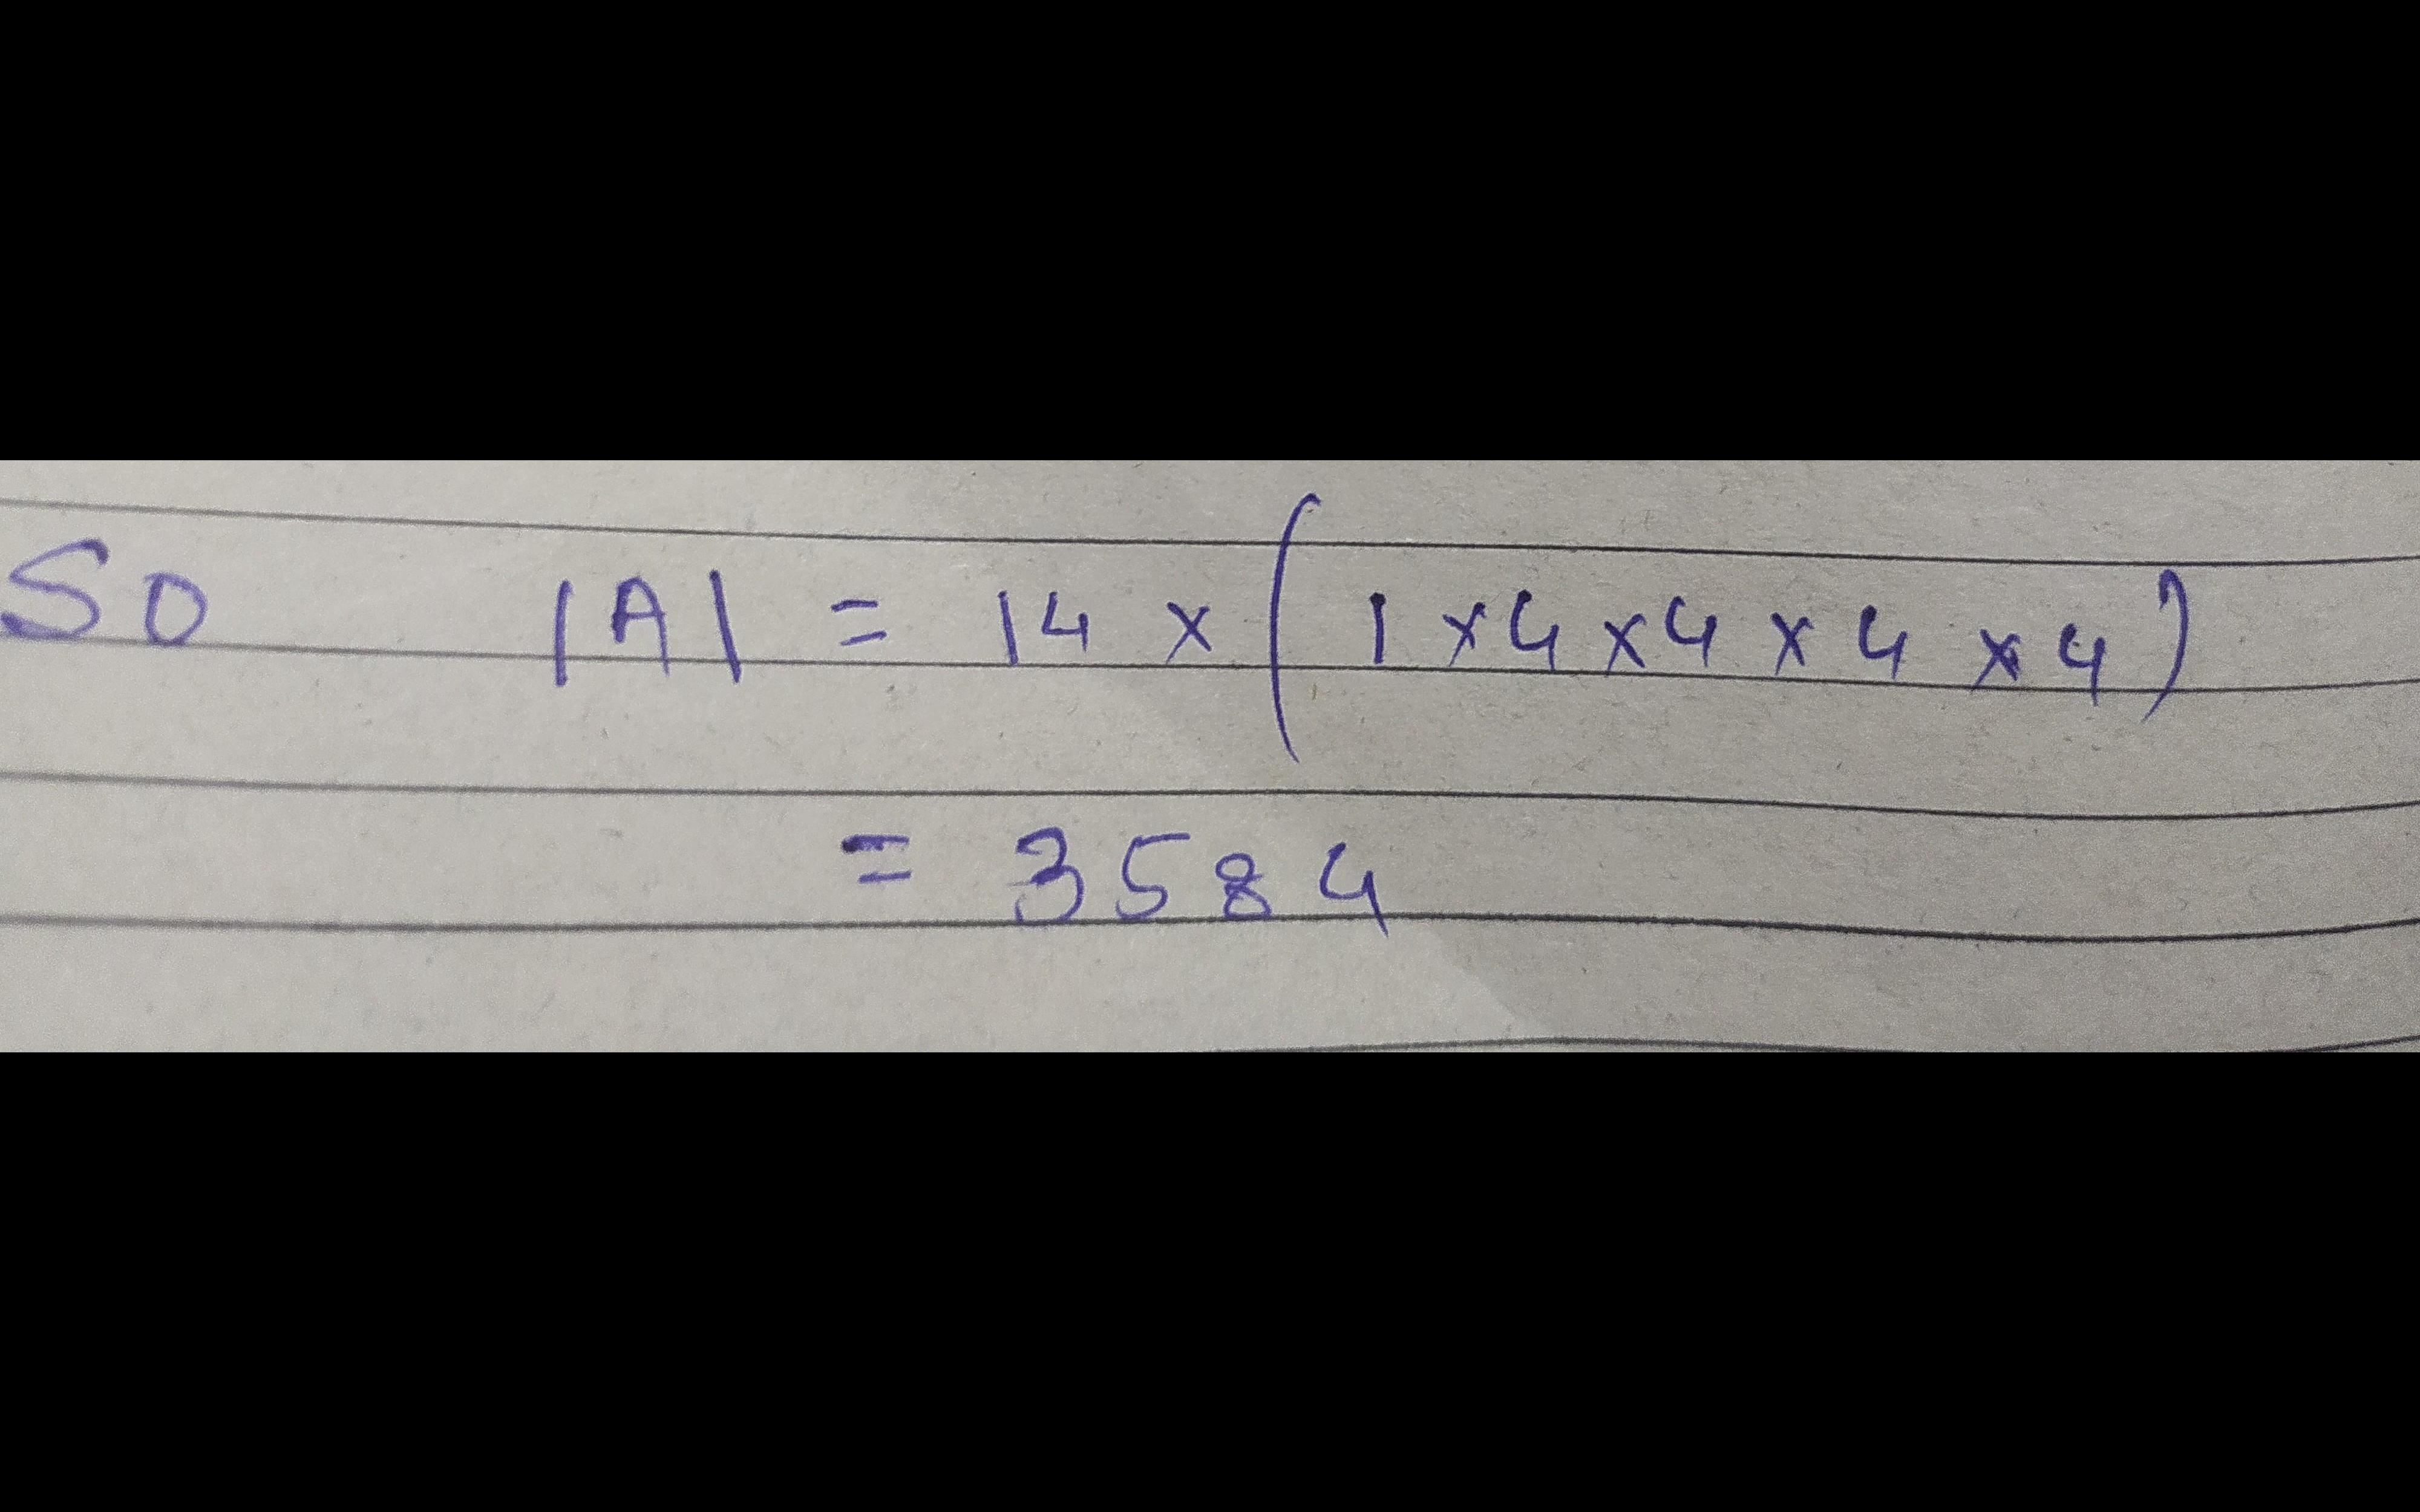 So |A| = 14 × ( 1 × 4 × 4 × 4 × 4 )
= 3584